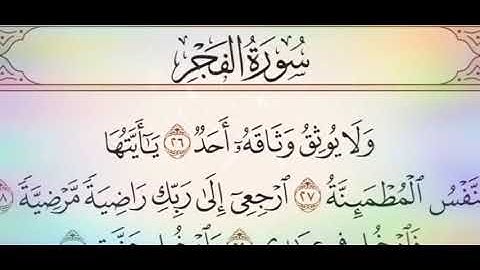 سُورَةُ الفَجْرِ
وَلَا يُوثِقُ وَثَاقَهُۥٓ أَحَدٌ ٢٦ يَـٰٓأَيَّتُهَا
ٱلنَّفْسُ ٱلْمُطْمَئِنَّةُ ٢٧ ٱرْجِعِىٓ إِلَىٰ رَبِّكِ رَاضِيَةً مَّرْضِيَّةً ٢٨